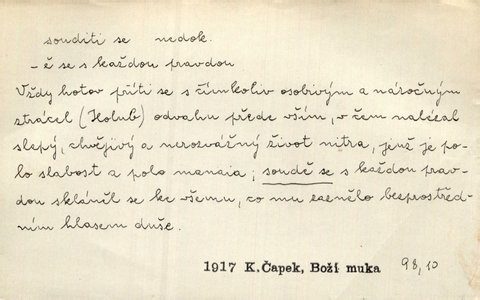 souditi se nedok.
– ě se s každou pravdou
Vždy hotov příti se s čímkoliv osobivým a náročným
strácel (Holub) odvahu přede vším, v čem nalézal
slepý, chvějivý a nerozvážný život nitra, jenž je po-
lo slabost a polo mania; soudě se s každou prav-
dou skláněl se ke všemu, co mu zaznělo bezprostřed-
ním hlasem duše.
1917 K.Čapek, Boží muka 98,10